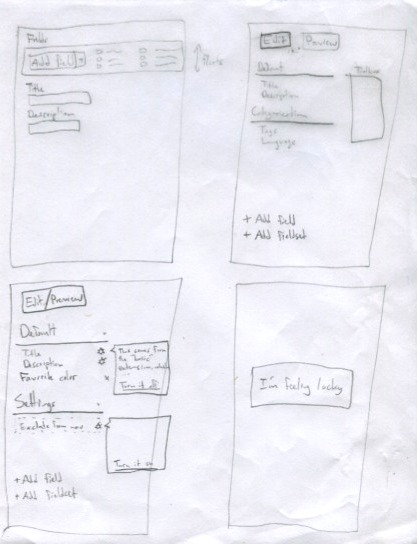 Fields
Add field
Title
Description
Edit
Preview
Default
Toolbox
Title
Description
Categorization
Tags
Language
+ Add field
+ Add fieldset
Edit/Preview
Default
Title
Description
Favorite color x
This comes from
the "basic"
extension,
Turn it off
Settings
Exclude from nav
Turn it on
+ Add field
+ Add fieldset
I'm feeling lucky